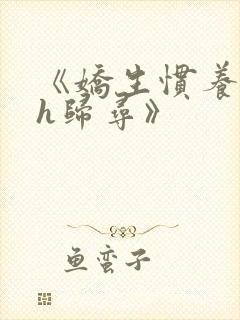 《嬌生慣養
h歸尋》
鱼蛮子